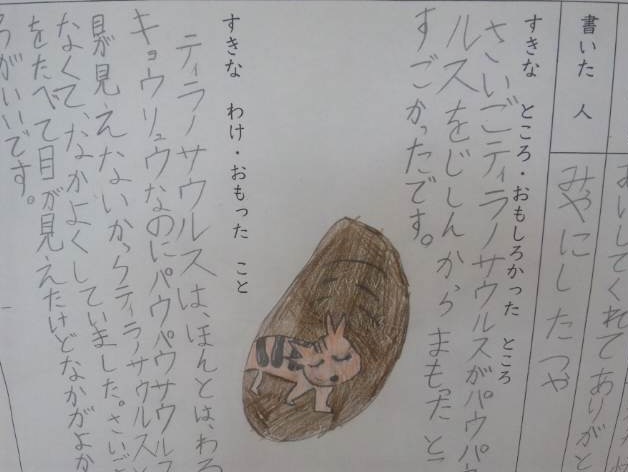 おいしてくれてありがと
書いた 人
みやにし たつや
すきな ところ・おもしろかった ところ
さいごティラノサウルスがパウパウ
ルスをじしんから まもった と
すごかったです。
すきな わけ・おもった こと
ティラノサウルスは、ほんとは、わる
キョウリュウなのにパウパウサウルス
目が見えないからティラノサウルスと
なくて、なかよくしていました。さいご
をたべて目が見えたけどなかがよか
ろがいいです。